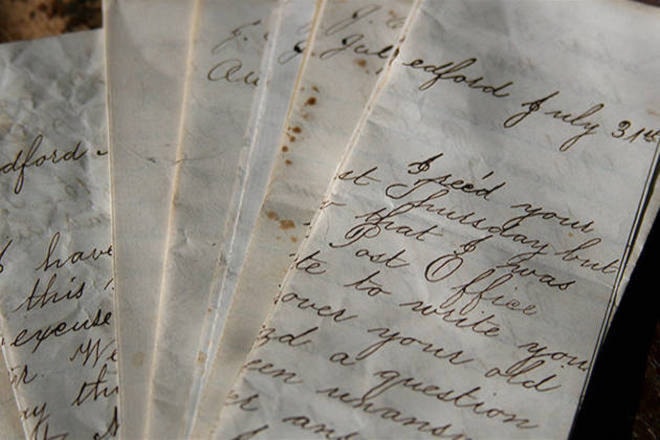 dford
have
this
excuse
r. We
my thi
J.
Au
J. 
July
edford July 31st
I rec'd your
st Thursday but
that I was
Post Office
te to write you
over your old
nd a question
een unansw
er and